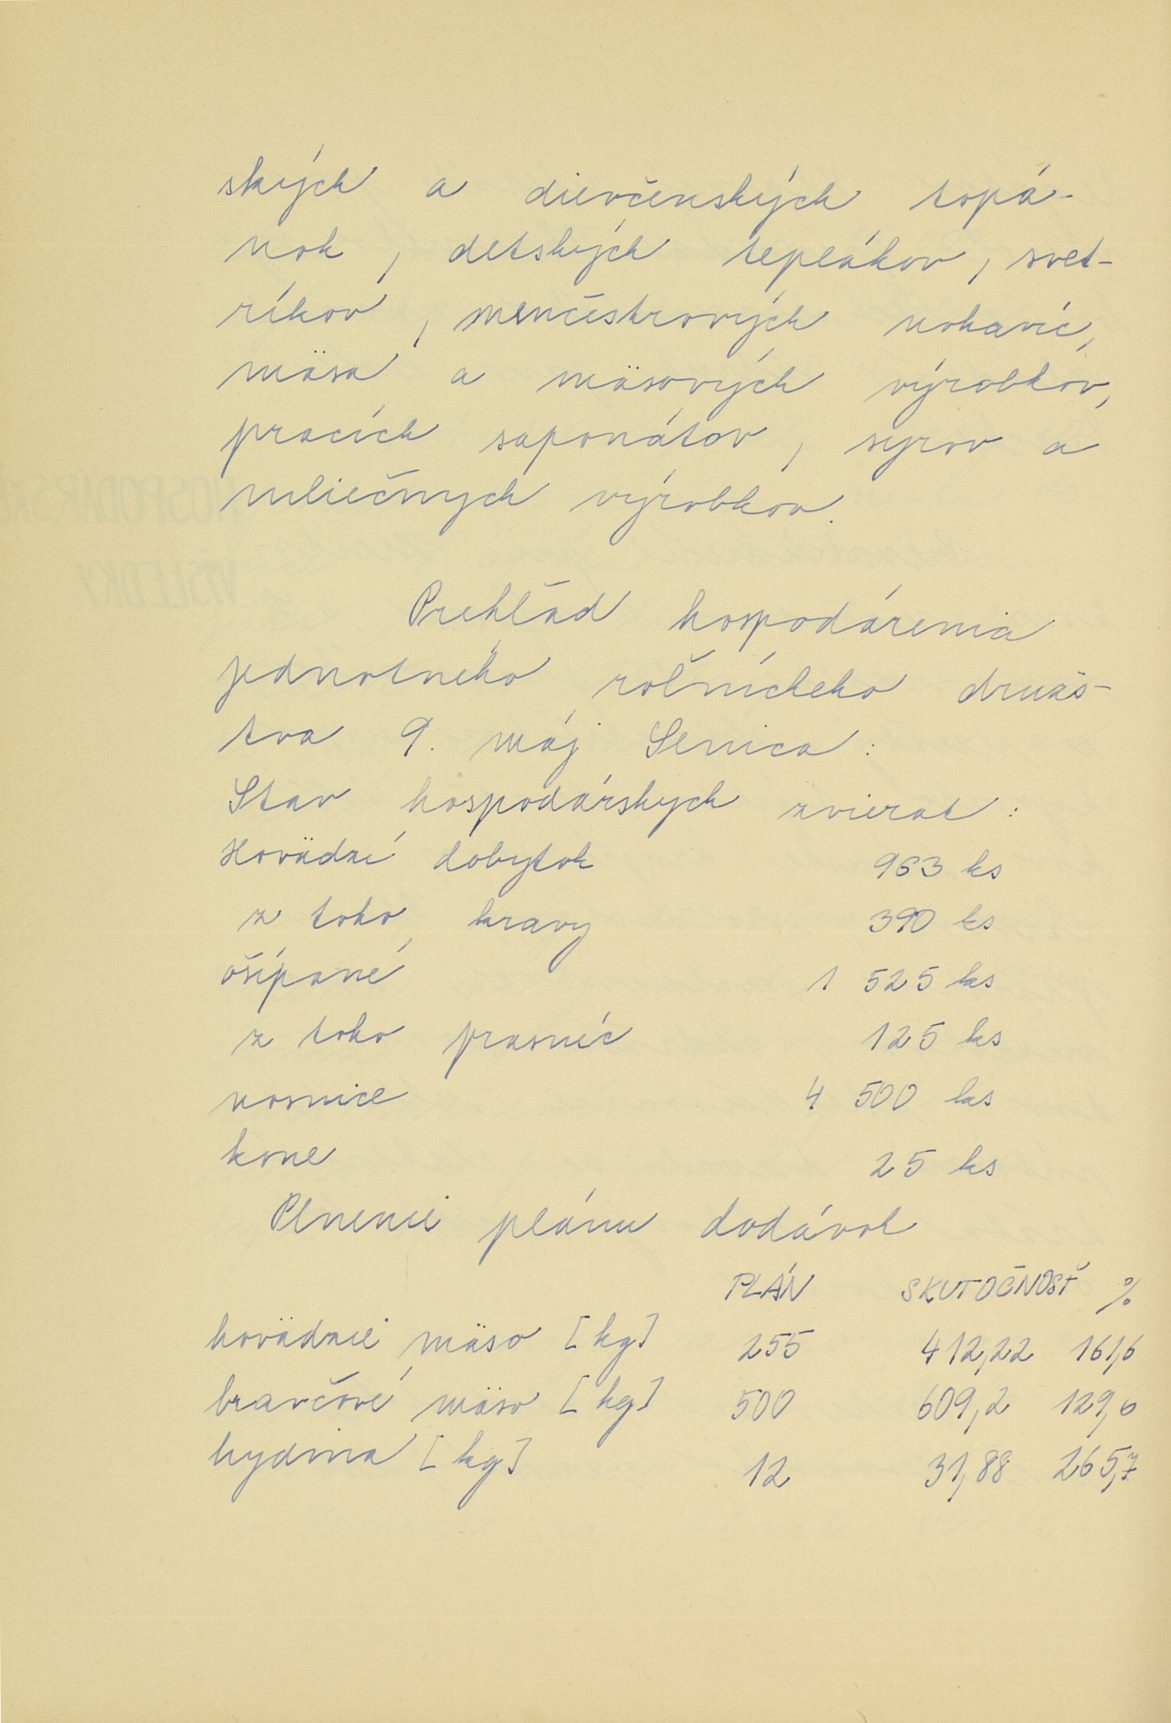 ských a dievčenských topá-
nok, detských teplákov, svet-
ríkov, menčestrových nohavíc,
mäsa a mäsových výrobkov,
pracích saponátov, syrov a
mliečnych výrobkov.
Prehľad hospodárenia
jednotného roľníckeho družs-
tva 9. máj Senica:
Stav hospodárskych zvierat:
Hovädzí dobytok 963 ks
z toho kravy 390 ks
ošípané 1 525 ks
z toho prasníc 125 ks
nosnice 4 500 ks
kone 25 ks
Plnenie plánu dodávok
PLÁN SKUTOČNOSŤ %
hovädzie mäso [kg] 255 412,22 161,6
bravčové mäso [kg] 500 609,2 129,6
hydina [kg] 12 31,88 265,7